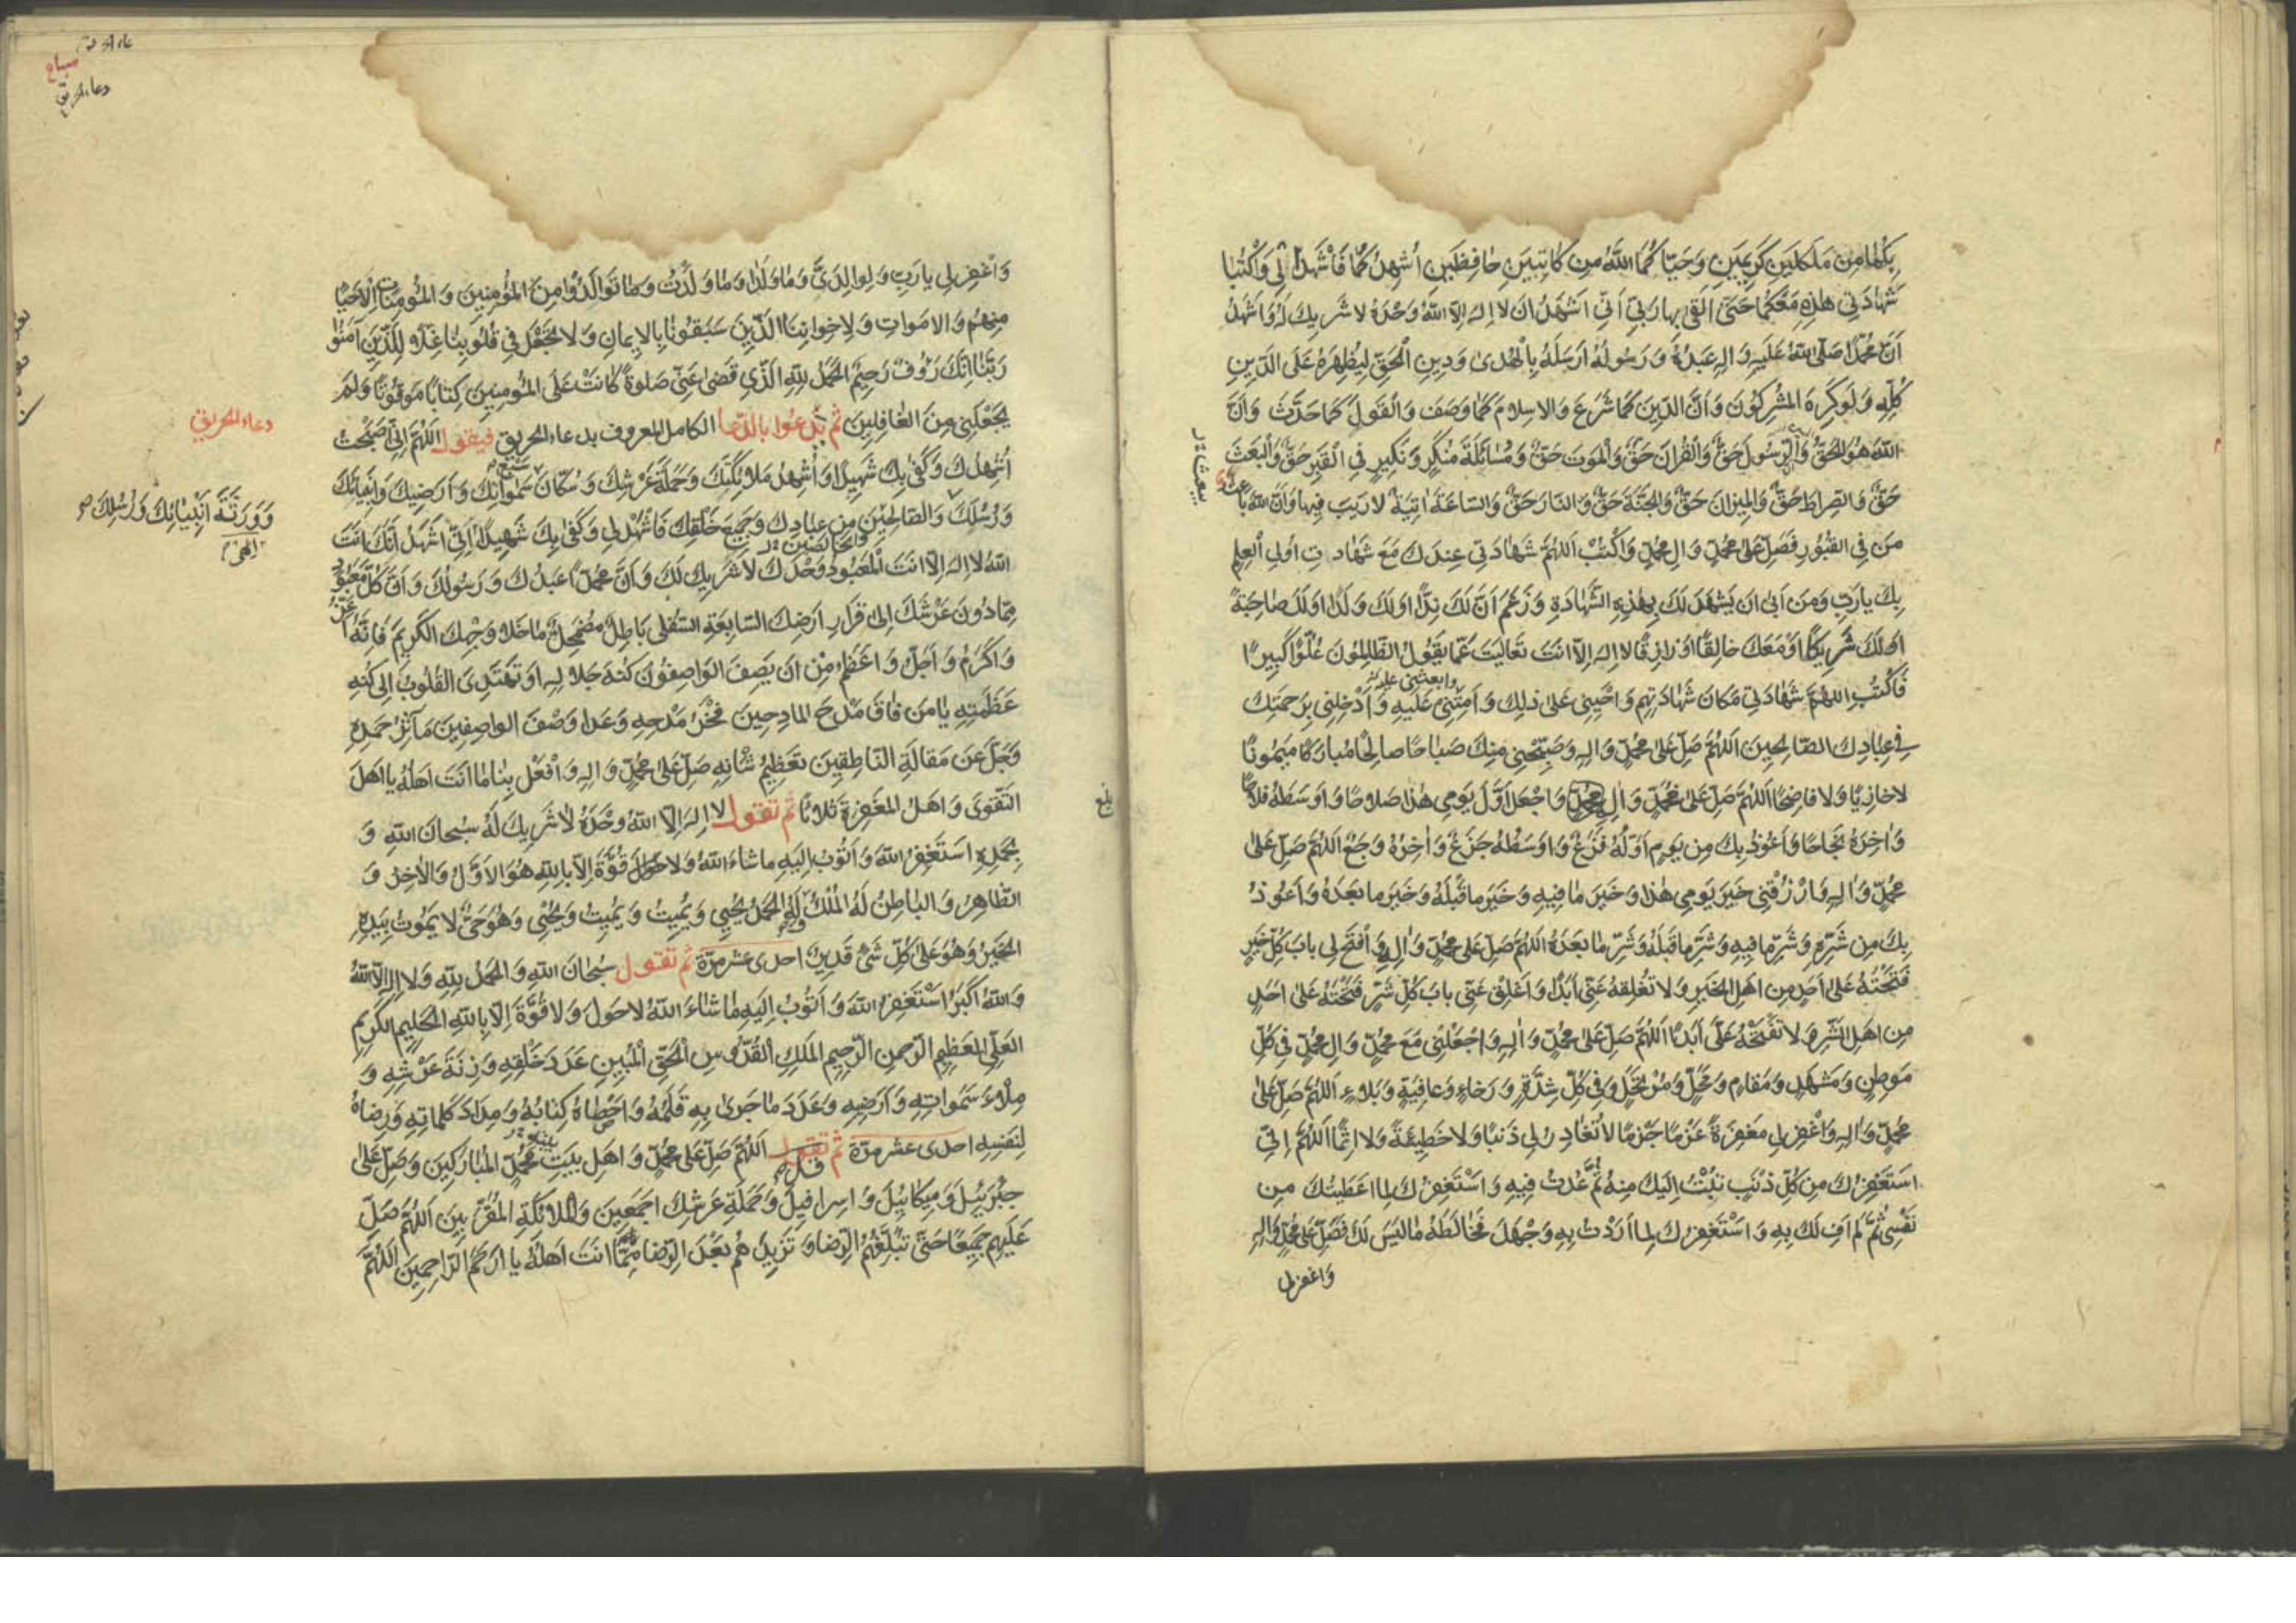 بِكُمٰا مِن مَلَكَيْنِ كَرِيمَيْنِ وَحَيّٰا كُمَا اللهُ مِن كٰاتِبَيْنِ حٰافِظَيْنِ اُشْهِدُ كُمٰا فَاشْهَدٰا لِي وَاكْتُبٰا
شَهٰادَتِي هٰذِهِ مَعَكُمٰا حَتّىٰ اَلقىٰ بِهٰا رَبّي اَنّي اَشْهَدُ اَن لا اِلهَ اِلّا اللهُ وَحْدَهُ لا شَرِيكَ لَهُ وَاَشْهَدُ
اَنَّ مُحَمَّدًا صَلَّى اللهُ عَلَيهِ وَالِهِ عَبدُهُ وَرَسُولُهُ اَرسَلَهُ بِالْهُدىٰ وَدِينِ الْحَقِّ لِيُظهِرَهُ عَلَى الدّينِ
كُلِّهِ وَلَو كَرِهَ المُشرِكُونَ وَاَنَّ الدّينَ كَمٰا شَرَعَ وَالاِسلامَ كَمٰا وَصَفَ وَالقَولَ كَمٰا حَدَّثَ وَاَنَّ
اللهَ هُوَ الحَقُّ وَالرَّسُولَ حَقٌّ وَالقُرانَ حَقٌّ وَالمَوتَ حَقٌّ وَمُسٰائَلَةَ مُنكَرٍ وَنَكِيرٍ فِي الْقَبرِ حَقٌّ وَالبَعْثَ
حَقٌّ وَالصِّراطَ حَقٌّ وَالمِيزٰانَ حَقٌّ وَالجَنَّةَ حَقٌّ وَالنّارَ حَقٌّ وَالسّاعَةَ اٰتِيَةٌ لا رَيبَ فِيهٰا وَاَنَّ اللهَ باعثٌ
يبعث خ ل
مَن فِي القُبُورِ فَصَلِّ عَلىٰ مُحَمَّدٍ وَالِ مُحَمَّدٍ وَاكْتُبْ اَللّهُمَّ شَهٰادَتي عِندَكَ مَعَ شَهٰادَتِ اُولِي العِلمِ
بِكَ يا رَبِّ وَمَن اَبىٰ اَن يَشهَدَ لَكَ بِهٰذِهِ الشَّهٰادَةِ وَزَعَمَ اَنَّ لَكَ نِدًّا اَو لَكَ وَلَدًا اَو لَكَ صاحِبَةً
اَو لَكَ شَرِيكًا اَو مَعَكَ خالِقًا اَو رازِقًا لا اِلهَ اِلّا اَنتَ تَعالَيتَ عَمّا يَقُولُ الظّالِمُونَ عُلُوًّا كَبِيرًا
فَاكتُبِ اللّهُمَّ شَهٰادَتي مَكانَ شَهٰادَتِهِم وَاَحْيِنِي عَلىٰ ذٰلِكَ وَاَمِتْنِي عَلَيهِ وَاَدْخِلنِي بِرَحمَتِكَ
وابعثني عليه خ
فِي عِبٰادِكَ الصّالِحِينَ اَللّهُمَّ صَلِّ عَلىٰ مُحَمَّدٍ وَالِهِ وَصَبِّحْنِي مِنكَ صَباحًا صالِحًا مُبارَكًا مَيمُونًا
لا خازِيًا وَلا فاضِحًا اَللّهُمَّ صَلِّ عَلىٰ مُحَمَّدٍ وَالِ مُحَمَّدٍ وَاجْعَل اَوَّلَ يَومِي هٰذٰا صَلاحًا وَاَوسَطَهُ فَلاحًا
وَاٰخِرَهُ نَجٰاحًا وَاَعُوذُ بِكَ مِن يَومٍ اَوَّلُهُ فَزَعٌ وَاَوسَطُهُ جَزَعٌ وَاٰخِرُهُ وَجَعٌ اَللّهُمَّ صَلِّ عَلىٰ
مُحَمَّدٍ وَالِهِ وَارْزُقْنِي خَيرَ يَومِي هٰذٰا وَخَيرَ مٰا فِيهِ وَخَيرَ ما قَبْلَهُ وَخَيرَ ما بَعدَهُ وَاَعُوذُ
بِكَ مِن شَرِّهِ وَشَرِّ ما فِيهِ وَشَرِّ ما قَبلَهُ وَشَرِّ ما بَعدَهُ اَللّهُمَّ صَلِّ عَلىٰ مُحَمَّدٍ وَالِهِ وَافْتَح لِي بابَ كُلِّ خَيرٍ
فَتَحْتَهُ عَلىٰ اَحَدٍ مِن اَهلِ الخَيرِ وَلا تُغلِقهُ عَنّي اَبَدًا وَاَغلِق عَنّي بابَ كُلِّ شَرٍّ فَتَحْتَهُ عَلىٰ اَحَدٍ
مِن اَهلِ الشَّرِّ وَلا تَفْتَحْهُ عَلَيَّ اَبَدًا اَللّهُمَّ صَلِّ عَلىٰ مُحَمَّدٍ وَالِهِ وَاجْعَلنِي مَعَ مُحَمَّدٍ وَالِ مُحَمَّدٍ فِي كُلِّ
مَوطِنٍ وَمَشهَدٍ وَمَقامٍ وَمَحَلٍّ وَمُرتَحَلٍ وَفِي كُلِّ شِدَّةٍ وَرَخاءٍ وَعافِيَةٍ وَبَلاءٍ اَللّهُمَّ صَلِّ عَلىٰ
مُحَمَّدٍ وَالِهِ وَاغْفِر لِي مَغفِرَةً عَزمًا جَزمًا لا تُغٰادِرُ لِي ذَنبًا وَلا خَطِيئَةً وَلا اِثمًا اَللّهُمَّ اِنّي
اَستَغفِرُكَ مِن كُلِّ ذَنبٍ تُبْتُ اِلَيكَ مِنهُ ثُمَّ عُدتُ فِيهِ وَاَسْتَغفِرُكَ لِما اَعطَيتُكَ مِن
نَفْسِي ثُمَّ لَم اَفِ لَكَ بِهِ وَاَسْتَغفِرُكَ لِما اَرَدْتُ بِهِ وَجْهَكَ فَخٰالَطَهُ مٰا لَيسَ لَكَ فَصَلِّ عَلىٰ مُحَمَّدٍ وَالِهِ
وَاغفِر لِي
بلغ
وَاغْفِر لِي يا رَبِّ وَلِوالِدَيَّ وَمٰا وَلَدٰا وَمٰا وَلَدْتُ وَمٰا تَوٰالَدُوا مِنَ المُؤمِنِينَ وَالمُؤمِنٰاتِ الاَحيٰاءِ
مِنهُم وَالاَمواتِ وَلِاِخوانِنَا الَّذِينَ سَبَقُونٰا بِالاِيمانِ وَلا تَجْعَل فِي قُلُوبِنٰا غِلًّا لِلَّذِينَ آمَنُوا
رَبَّنٰا اِنَّكَ رَؤُوفٌ رَحِيمٌ الحَمدُ لِلّهِ الَّذِي قَضىٰ عَنّي صَلوةً كٰانَتْ عَلَى المُؤمِنِينَ كِتٰابًا مَوقُوتًا وَلَم
يَجْعَلنِي مِنَ الغٰافِلِينَ ثُمَّ تَدعُوا بِالدُّعا الكامل المعروف بدعاء الحريق فيقول اَللّهُمَّ اِنّي اَصبَحْتُ
دعاء الحريق
اُشْهِدُكَ وَكَفىٰ بِكَ شَهِيدًا وَاُشهِدُ مَلائِكَتَكَ وَحَمَلَةَ عَرْشِكَ وَسُكّانَ سَبْعِ سَمٰواتِكَ وَاَرَضِيكَ وَاَنبِيائَكَ
وَوَرَثَةَ اَنْبِيٰائِكَ وَرُسُلِكَ
وَرُسُلِكَ وَالصّالِحِينَ مِن عِبادِكَ وَجَمِيعَ خَلقِكَ فَاشْهَد لِي وَكَفىٰ بِكَ شَهِيدًا اَنّي اَشهَدُ اَنَّكَ اَنتَ
اللهُ لا اِلهَ اِلّا اَنتَ المَعبُودُ وَحْدَكَ لا شَرِيكَ لَكَ وَاَنَّ مُحَمَّدًا عَبدُكَ وَرَسُولُكَ وَاَنَّ كُلَّ مَعبُودٍ
مِمّا دُونَ عَرْشِكَ اِلىٰ قَرارِ اَرضِكَ السّابِعَةِ السُّفلىٰ باطِلٌ مُضمَحِلٌّ ما خَلا وَجْهِكَ الكَرِيمِ فَاِنَّهُ اَعَزُّ
وَاَكرَمُ وَاَجَلُّ وَاَعْظَمُ مِن اَن يَصِفَ الوٰاصِفُونَ كُنهَ جَلالِهِ اَو تَهتَدِيَ القُلُوبُ اِلىٰ كُنهِ
عَظَمَتِهِ يٰا مَن فٰاقَ مَدْحَ المادِحِينَ فَخْرُ مَدْحِهِ وَعَدا وَصْفَ الواصِفِينَ مَآثِرُ حَمدِهِ
وَجَلَّ عَن مَقالَةِ النّاطِقِينَ تَعظِيمُ شٰانِهِ صَلِّ عَلىٰ مُحَمَّدٍ وَالِهِ وَافْعَل بِنٰا مٰا اَنتَ اَهلُهُ يا اَهلَ
التَّقوىٰ وَاَهلَ المَغفِرَةِ ثَلاثًا ثُمَّ تقول لا اِلهَ اِلّا اللهُ وَحْدَهُ لا شَرِيكَ لَهُ سُبحانَ اللهِ وَ
بِحَمدِهِ اَستَغفِرُ اللهَ وَاَتُوبُ اِلَيهِ ما شاءَ اللهُ وَلا حَولَ وَلا قُوَّةَ اِلّا بِاللهِ هُوَ الاَوَّلُ وَالاٰخِرُ وَ
الظّاهِرُ وَالباطِنُ لَهُ المُلكُ وَلَهُ الحَمدُ يُحيِي وَيُمِيتُ وَيُمِيتُ وَيُحْيِي وَهُوَ حَيٌّ لا يَمُوتُ بِيَدِهِ
الخَيرُ وَهُوَ عَلىٰ كُلِّ شَيءٍ قَدِيرٌ احدى عشر مرّة ثمّ تقول سُبحانَ اللهِ وَالحَمدُ لِلّهِ وَلا اِلهَ اِلّا اللهُ
وَاللهُ اَكبَرُ اَسْتَغفِرُ اللهَ وَاَتُوبُ اِلَيهِ مٰا شٰاءَ اللهُ لا حَولَ وَلا قُوَّةَ اِلّا بِاللهِ الحَلِيمِ الكَرِيمِ
العَلِيِّ العَظِيمِ الرَّحمنِ الرَّحِيمِ المَلِكِ القُدُّوسِ الحَقِّ المُبِينِ عَدَدَ خَلْقِهِ وَزِنَةَ عَرْشِهِ وَ
مِلْاءَ سَمٰواتِهِ وَاَرَضِيهِ وَعَدَدَ ما جَرىٰ بِهِ قَلَمُهُ وَاَحصٰاهُ كِتٰابُهُ وَمِدادَ كَلِماتِهِ وَرِضاهُ
لِنَفسِهِ احدى عشر مرّة ثمّ تقول قل اَللّهُمَّ صَلِّ عَلىٰ مُحَمَّدٍ وَاَهلِ بَيتِ مُحَمَّدٍ المُبٰارَكِينَ وَصَلِّ عَلىٰ
جِبْرَئِيلَ وَمِيكٰائِيلَ وَاِسرافِيلَ وَحَمَلَةِ عَرشِكَ اَجمَعِينَ وَالمَلائِكَةِ المُقَرَّبِينَ اَللّهُمَّ صَلِّ
عَلَيهِم جَمِيعًا حَتّىٰ تُبَلِّغَهُمُ الرِّضا وَتَزِيدَهُم بَعْدَ الرِّضا مِمّا اَنتَ اَهلُهُ يا اَرحَمَ الرّاحِمِينَ اَللّهُمَّ